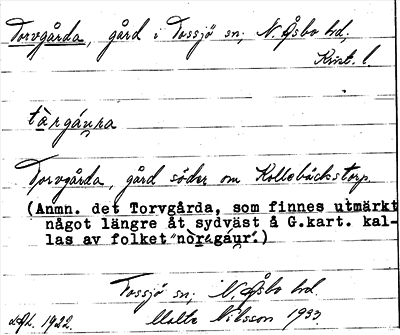 Torvgårda, gård i Tossjö sn, N. Åsbo hd,
Krist. l.
tàrgáura
Torvgårda, gård söder om Kollebäckstorp.
(Anmn. det Torvgårda, som finnes utmärkt
något längre åt sydväst å G.kart. kal-
las av folket "nòragáur".)
Tossjö sn, N. Åsbo hd.
1922. Malte Nilsson 1933